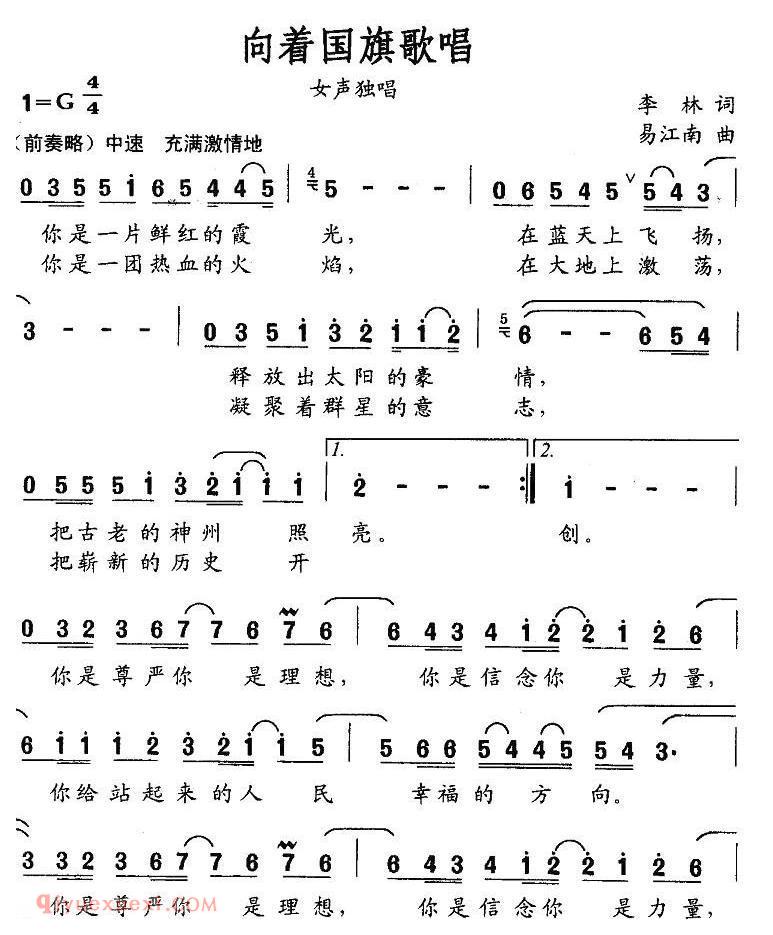 向着国旗歌唱
女声独唱
1=G 4/4
李 林 词
易江南 曲
（前奏略）中速 充满激情地
0 3 5 5 i 6 5 4 4 5 | 4 5 - - - | 0 6 5 4 5 ∨ 5 4 3 |
你是一片鲜红的霞 光， 在蓝天上飞 扬，
你是一团热血的火 焰， 在大地上激 荡，
3 - - - | 0 3 5 i 3 2 i i 2 | 5 6 - - 6 5 4 |
释放出太阳的豪 情，
凝聚着群星的意 志，
1. 2.
0 5 5 5 i 3 2 i i i | 2 - - - :| i - - - |
把古老的神州 照 亮。 创。
把崭新的历史 开
0 3 2 3 6 7 7 6 7 6 | 6 4 3 4 i 2 2 i 2 6 |
你是尊严你 是理想， 你是信念你 是力量，
6 i i i 2 3 2 i i 5 | 5 6 6 5 4 4 5 5 4 3· |
你给站起来的人 民 幸福的 方 向。
3 3 3 3 6 7 7 6 7 6 | 6 4 3 4 i 2 2 i 2 6 |
你是尊严你 是理想， 你是信念你 是力量，